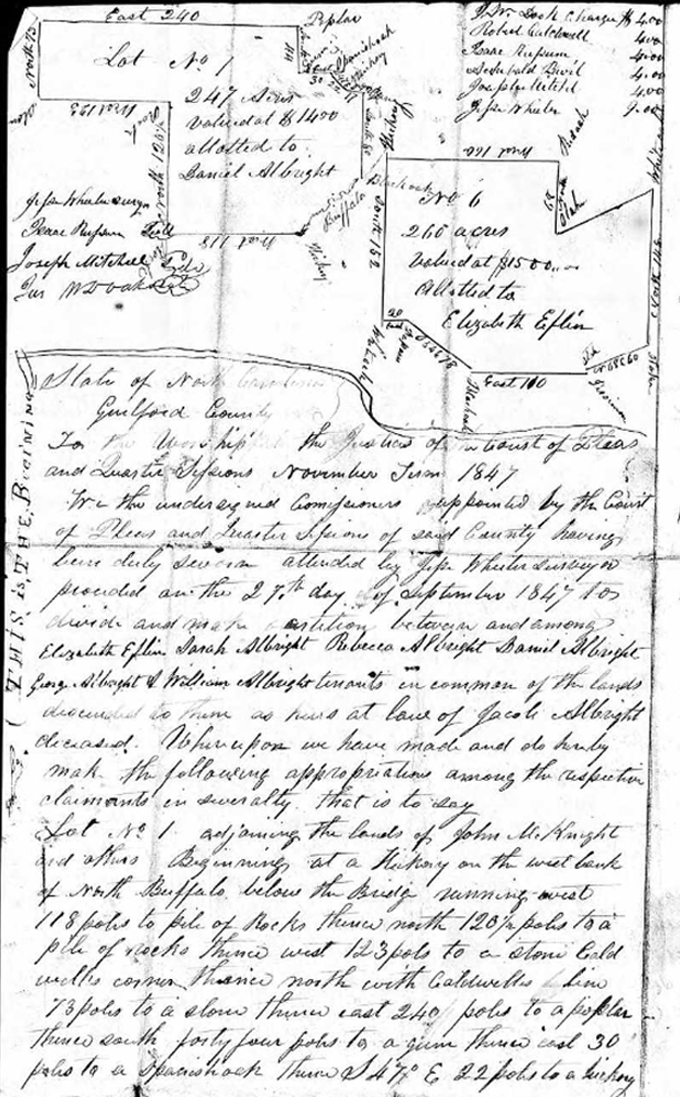 East 240
Poplar
North 73
Lot No 1
247 Acres
valued at $1400
allotted to
Daniel Albright
West 123
Rock
North 120 1/2
West 118
Hickory
Buffalo
Jesse Wheeler surveyor
Isaac Russum Seal
Joseph Mitchell Seal
Spanishoak
Hickory
Robert Caldwell 4.00
Isaac Russum 4.00
Archibald Bevil 4.00
Joseph Mitchel 4.00
Jesse Wheeler 9.00
West 166
No 6
260 acres
valued at $1500
Allotted to
Elizabeth Eflin
South 152
20
East
East 100
Persimon
North 142
Stake
THIS IS THE BEGINING
State of North Carolina
Guilford County
To the Worshipful the Justices of the Court of Pleas
and Quarter Sessions November Term 1847
We the undersigned Comissioners appointed by the Court
of Pleas and Quarter Sessions of said County having
been duly sworn attended by Jesse Wheeler surveyor
proceded on the 27th day of September 1847 to
divide and make partition between and among
Elizabeth Eflin Sarah Albright Rebecca Albright Daniel Albright
George Albright & William Albright tenants in common of the lands
descended to them as heirs at law of Jacob Albright
deceased. Whereupon we have made and do hereby
make the following appropriations among the respective
claimants in severalty that is to say
Lot No 1. adjoining the lands of John McKnight
and others Beginning at a Hickory on the west bank
of North Buffalo below the Bridge running west
118 poles to pile of Rocks thence north 120 1/2 poles to a
pile of rocks thence west 123 pols to a stone Cald
wells corner thence north with Caldwells line
73 poles to a stone thence east 240 poles to a poplar
thence south forty four poles to a gum thence east 30
poles to a spanishoak thence S 47° E 22 poles to a hickory